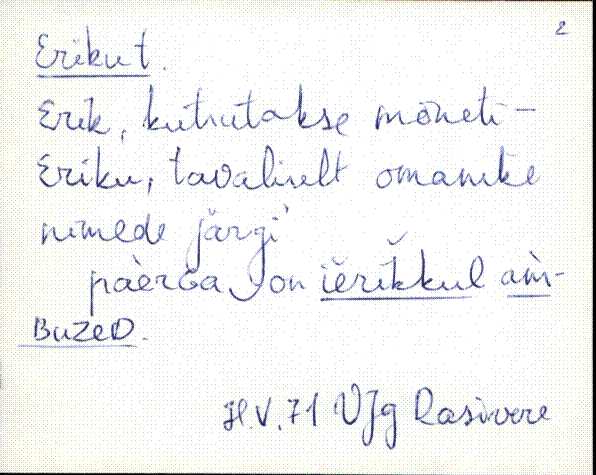 2
Erikut.
Erik, kutsutakse mõneti-
Eriku, tavaliselt omanike
nimede järgi
päerva on ièrikkul
BuzeD.
H.V. 71 VJg Rasivere